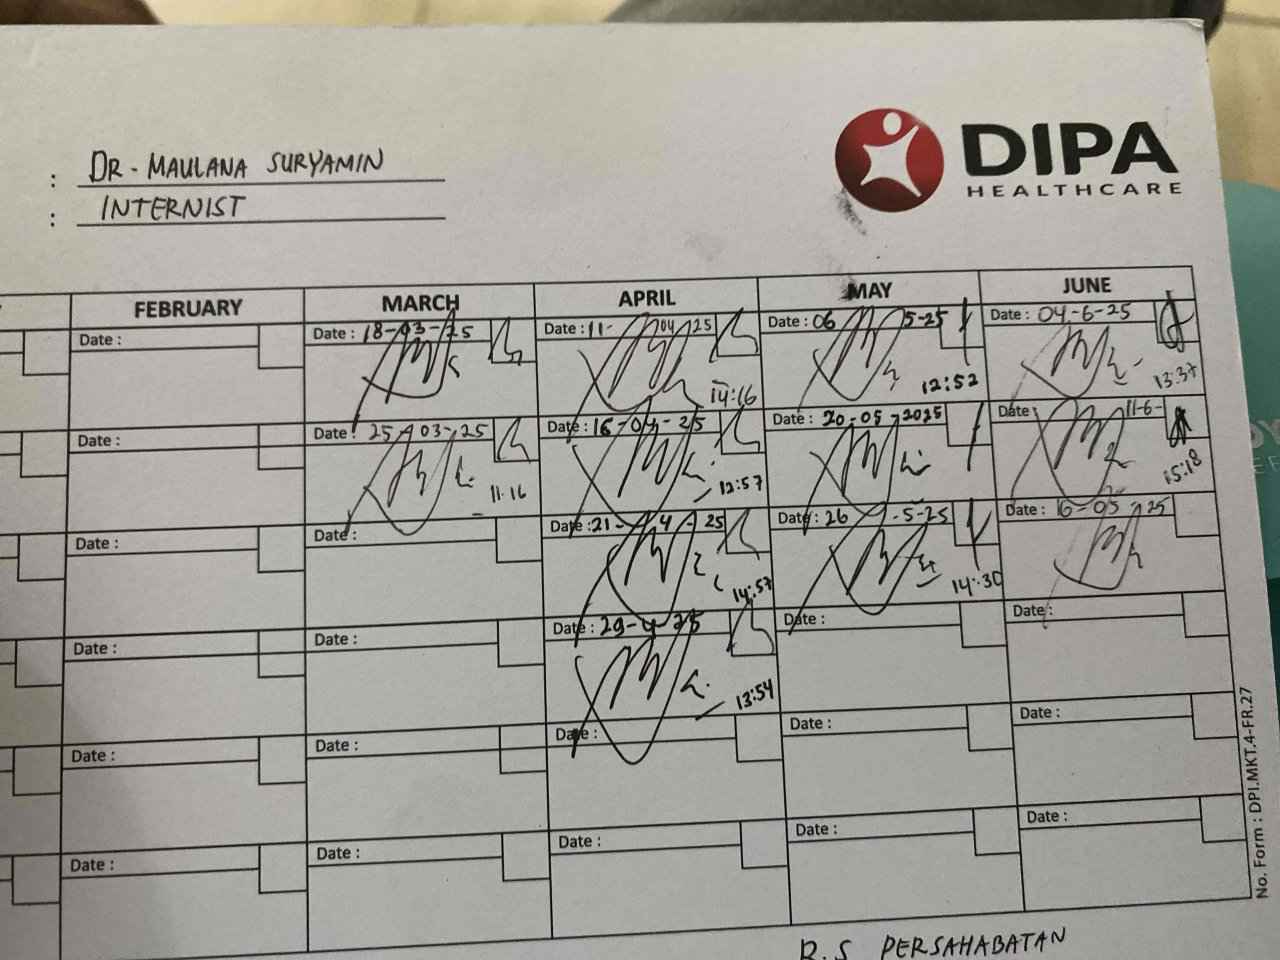 DIPA
HEALTHCARE
: DR. MAULANA SURYAMIN
: INTERNIST
FEBRUARY MARCH APRIL MAY JUNE
Date : Date : 18-03-25 Date : 11- 04 25 Date : 06 5-25 Date : 04-6-25
14:16 12:52 13:37
Date : Date : 25-03-25 Date : 16-04-25 Date : 20-05-2025 Date : 11-6-
11.16 12:57 15:18
Date : Date : Date : 21- 4 - 25 Date : 26 -5-25 Date : 16-05-25
14:57 14:30
Date : Date : Date : 29-4-25 Date : Date :
13:54
Date : Date : Date : Date : Date :
Date : Date : Date : Date : Date :
No. Form : DPI.MKT.4-FR.27
R.S PERSAHABATAN